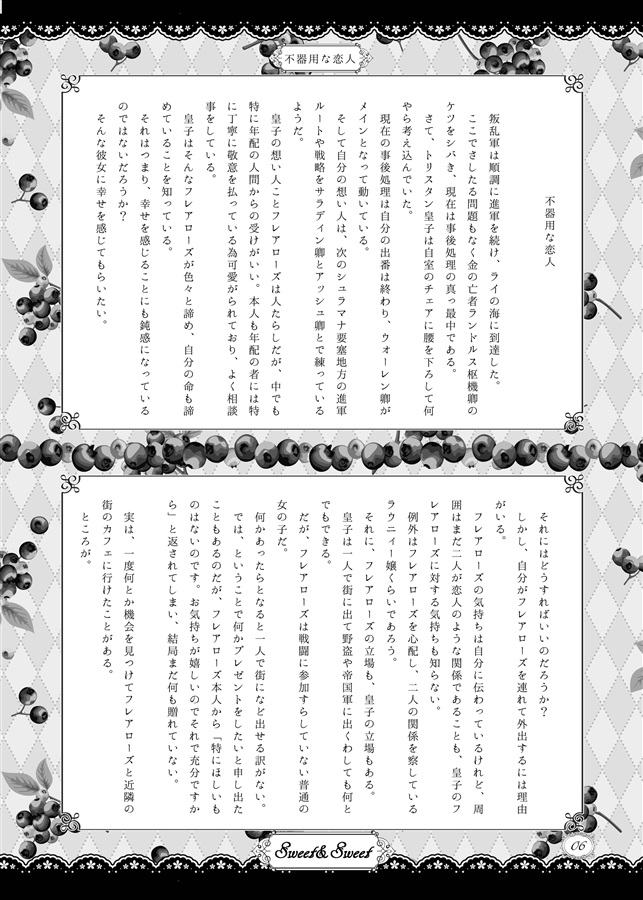 不器用な恋人
不器用な恋人
叛乱軍は順調に進軍を続け、ライの海に到達した。
ここでさしたる問題もなく金の亡者ランドルス枢機卿の
ケツをシバき、現在は事後処理の真っ最中である。
さて、トリスタン皇子は自室のチェアに腰を下ろして何
やら考え込んでいた。
現在の事後処理は自分の出番は終わり、ウォーレン卿が
メインとなって動いている。
そして自分の想い人は、次のシュラマナ要塞地方の進軍
ルートや戦略をサラディン卿とアッシュ卿とで練っている
ようだ。
皇子の想い人ことフレアローズは人たらしだが、中でも
特に年配の人間からの受けがいい。本人も年配の者には特
に丁寧に敬意を払っている為可愛がられており、よく相談
事をしている。
皇子はそんなフレアローズが色々と諦め、自分の命も諦
めていることを知っている。
それはつまり、幸せを感じることにも鈍感になっている
のではないだろうか?
そんな彼女に幸せを感じてもらいたい。
それにはどうすればいいのだろうか?
しかし、自分がフレアローズを連れて外出するには理由
がいる。
フレアローズの気持ちは自分に伝わっているけれど、周
囲はまだ二人が恋人のような関係であることも、皇子のフ
レアローズに対する気持ちも知らない。
例外はフレアローズを心配し、二人の関係を察している
ラウニィー嬢くらいであろう。
それに、フレアローズの立場も、皇子の立場もある。
皇子は一人で街に出て野盗や帝国軍に出くわしても何と
でもできる。
だが、フレアローズは戦闘に参加すらしていない普通の
女の子だ。
何かあったらとなると一人で街になど出せる訳がない。
では、ということで何かプレゼントをしたいと申し出た
こともあるのだが、フレアローズ本人から「特にほしいも
のはないのです。お気持ちが嬉しいのでそれで充分ですか
ら」と返されてしまい、結局まだ何も贈れていない。
実は、一度何とか機会を見つけてフレアローズと近隣の
街のカフェに行けたことがある。
ところが。
Sweet&Sweet
06